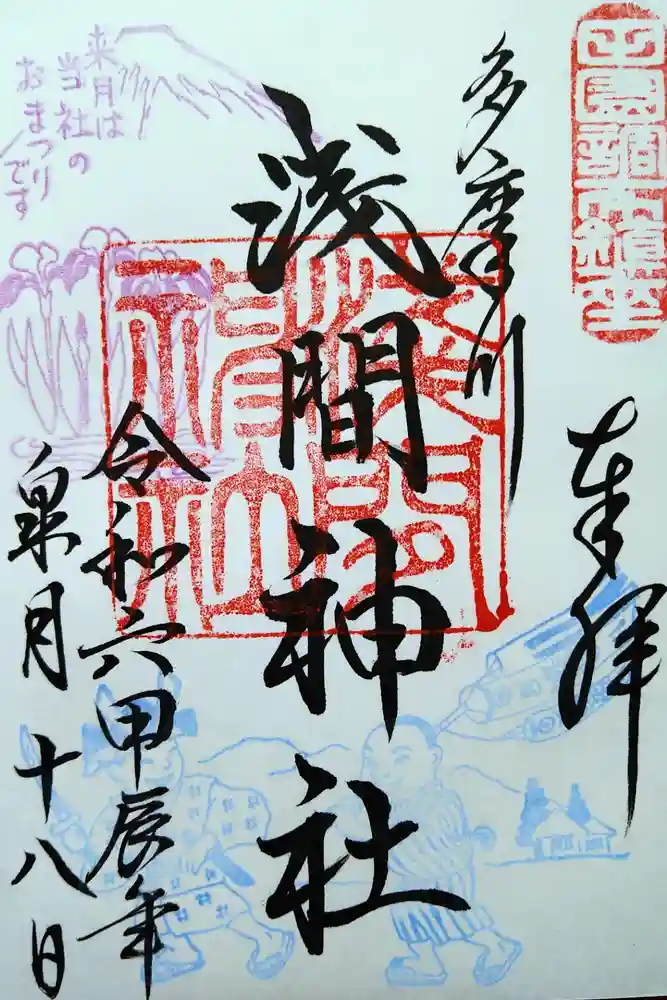 田園調布鎮坐
奉拝
多摩川
浅間神社
淺間
神社
令和六甲辰年
皐月十八日
来月は
当社の
おまつり
です